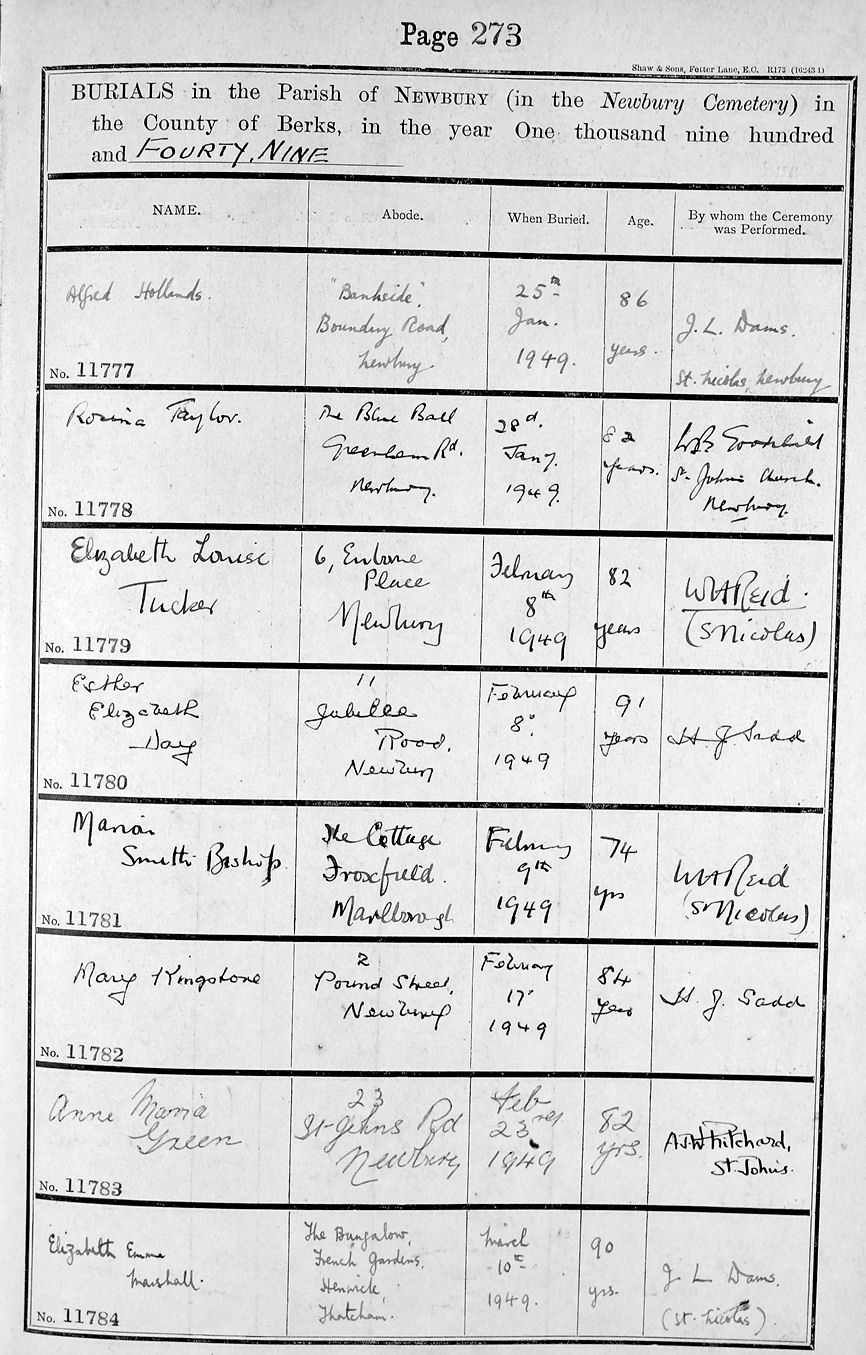 Page 273
Shaw & Sons, Fetter Lane, E.C. R173 (16243 1)
BURIALS in the Parish of NEWBURY (in the Newbury Cemetery) in
the County of Berks, in the year One thousand nine hundred
and FOURTY, NINE
NAME.
Abode.
When Buried.
Age.
By whom the Ceremony
was Performed.
Alfred Hollands.
No. 11777
"Bankside",
Boundry Road,
Newbury
25th
Jan.
1949.
86
years.
J. L. Dams.
St. Nicolas, Newbury
Rosina Taylor.
No. 11778
The Blue Ball
Greenham Rd.
Newbury.
28d.
Jany.
1949.
82
years.
St. John's Church.
Newbury.
Elizabeth Louise
Tucker
No. 11779
6, Enborne
Place
Newbury
February
8th
1949
82
years
WH Reid.
(S Nicolas)
Esther
Elizabeth
Day
No. 11780
11
Jubilee
Road.
Newbury
February
8.
1949
91
years
H. J. Sadd
Marian
Smith Bishop
No. 11781
The Cottage
Froxfield.
Marlborough
February
9th
1949
74
yrs
WH Reid
(St Nicolas)
Mary Kingstone
No. 11782
2
Pound Street,
Newbury
February
17
1949
84
Year
H. J. Sadd
Anne Maria
Green
No. 11783
23
St Johns Rd
Newbury
Feb
23
1949
82
yrs.
St. Johns.
Elizabeth Emma
Marshall.
No. 11784
The Bungalow,
French Gardens,
Henwick,
Thatcham.
March
10th
1949.
90
yrs.
J L Dams.
(St. Nicolas)